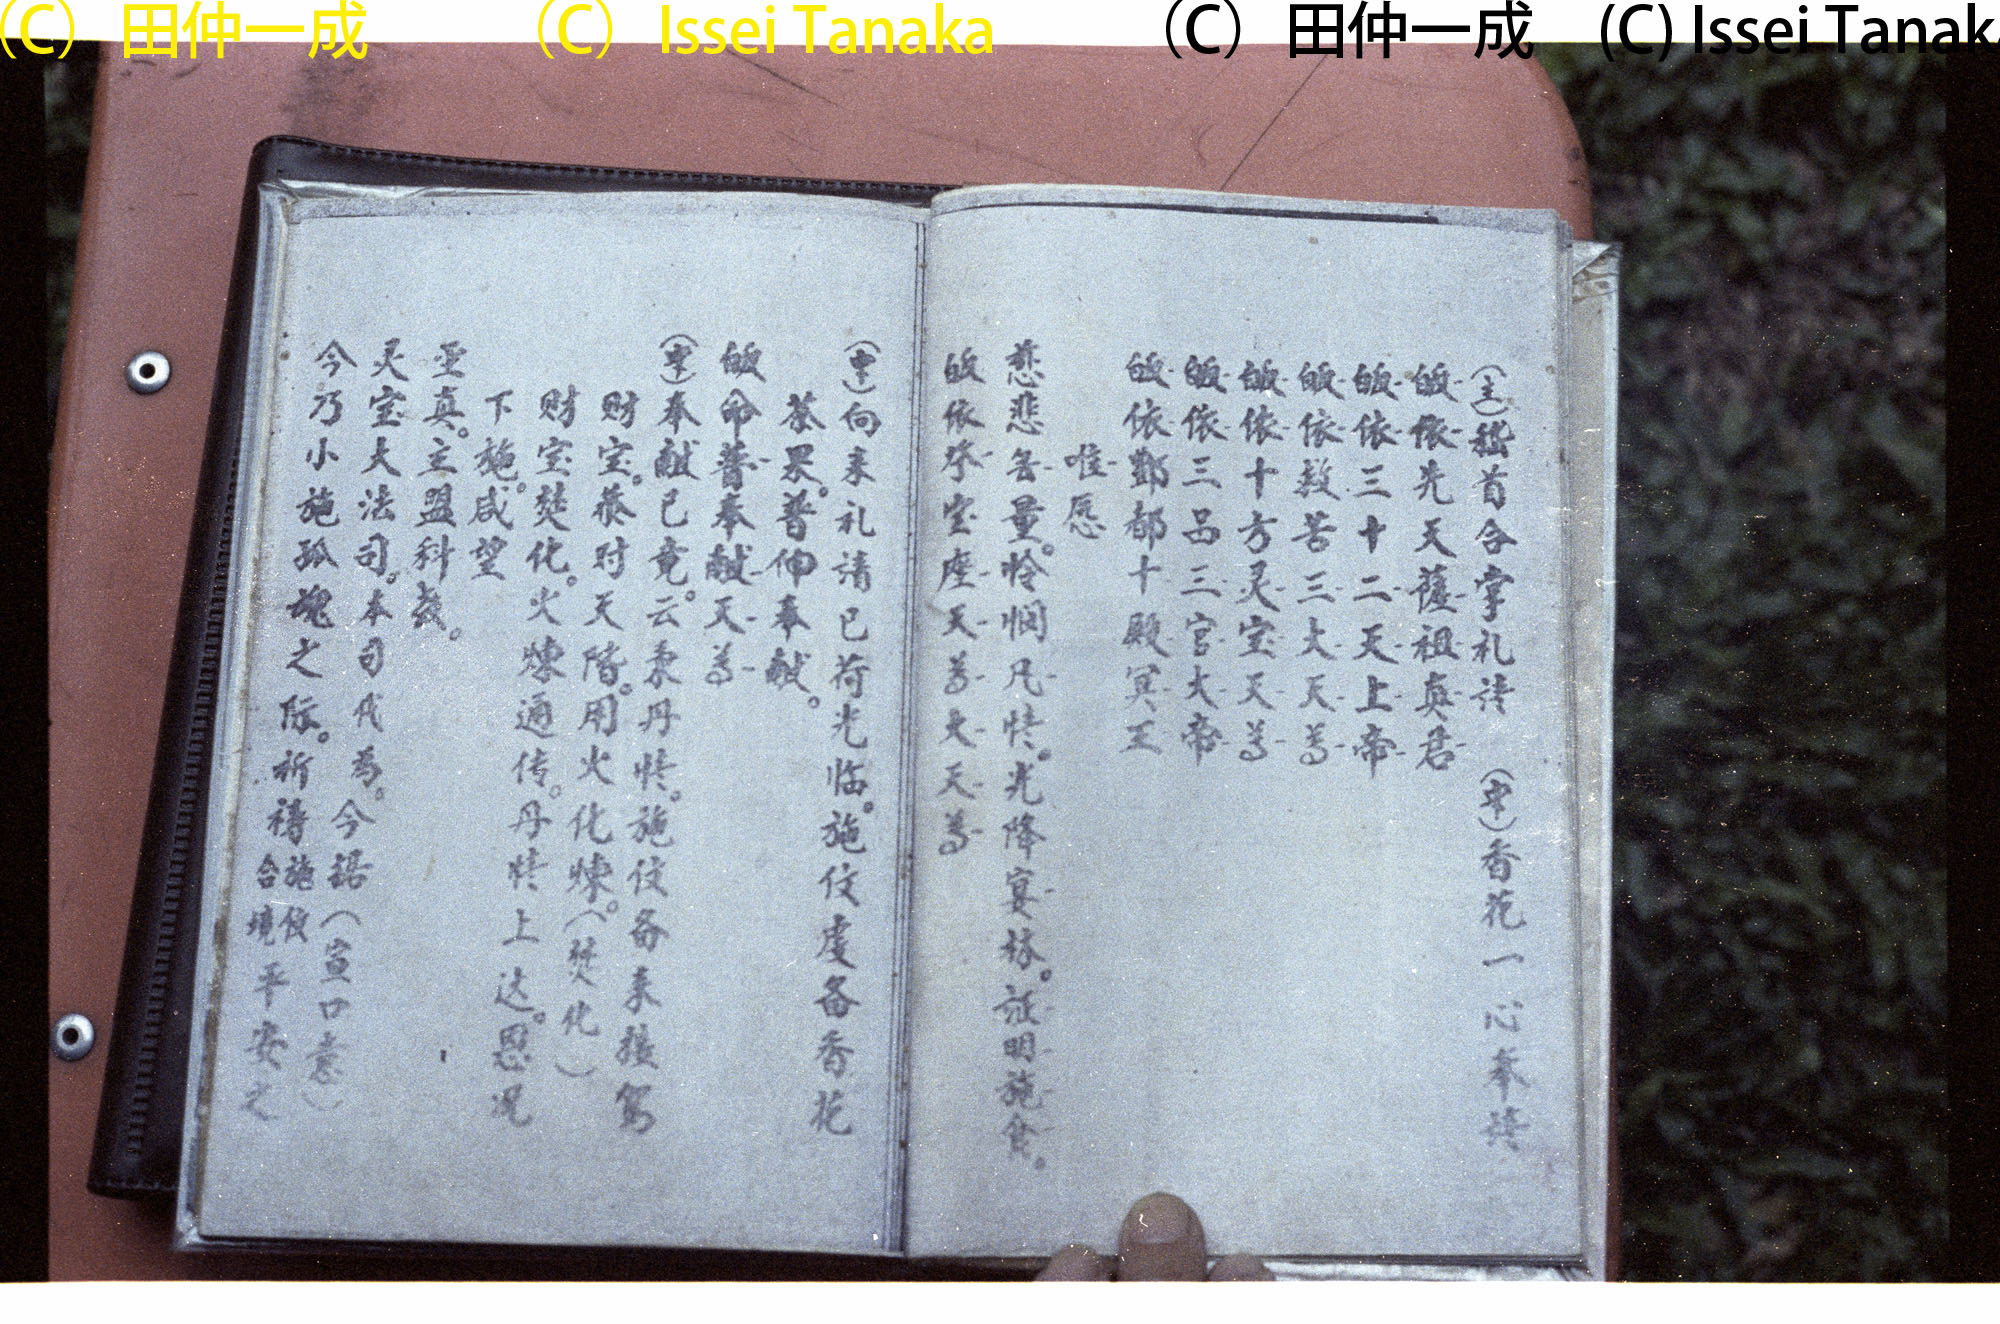 (C) 田仲一成 (C) Issei Tanaka (C) 田仲一成 (C) Issei Tanaka
(主)稽首合掌礼请 (中)香花一心奉请
皈依先天萨祖真君
皈依三十二天上帝
皈依救苦三大天尊
皈依十方灵宝天尊
皈依三品三官大帝
皈依酆都十殿冥王
唯愿
慈悲无量。怜悯凡忱。光降宴林。证明施食。
皈依登宝座天尊大天尊
(中)向来礼请已荷光临。施仗虔备香花
茶果。普伸奉献。
皈命普奉献天尊
(中)奉献已竟。云秉丹忱。施仗备来接驾
财宝。恭对天阶。用火化炼。(焚化)
财宝焚化。火炼通传。丹忱上达。恩况
下施。咸望
圣真。主盟科教。
灵宝大法司。本司代为。今据(宣口意)
今乃小施孤魂之际。祈祷施仗合境平安之